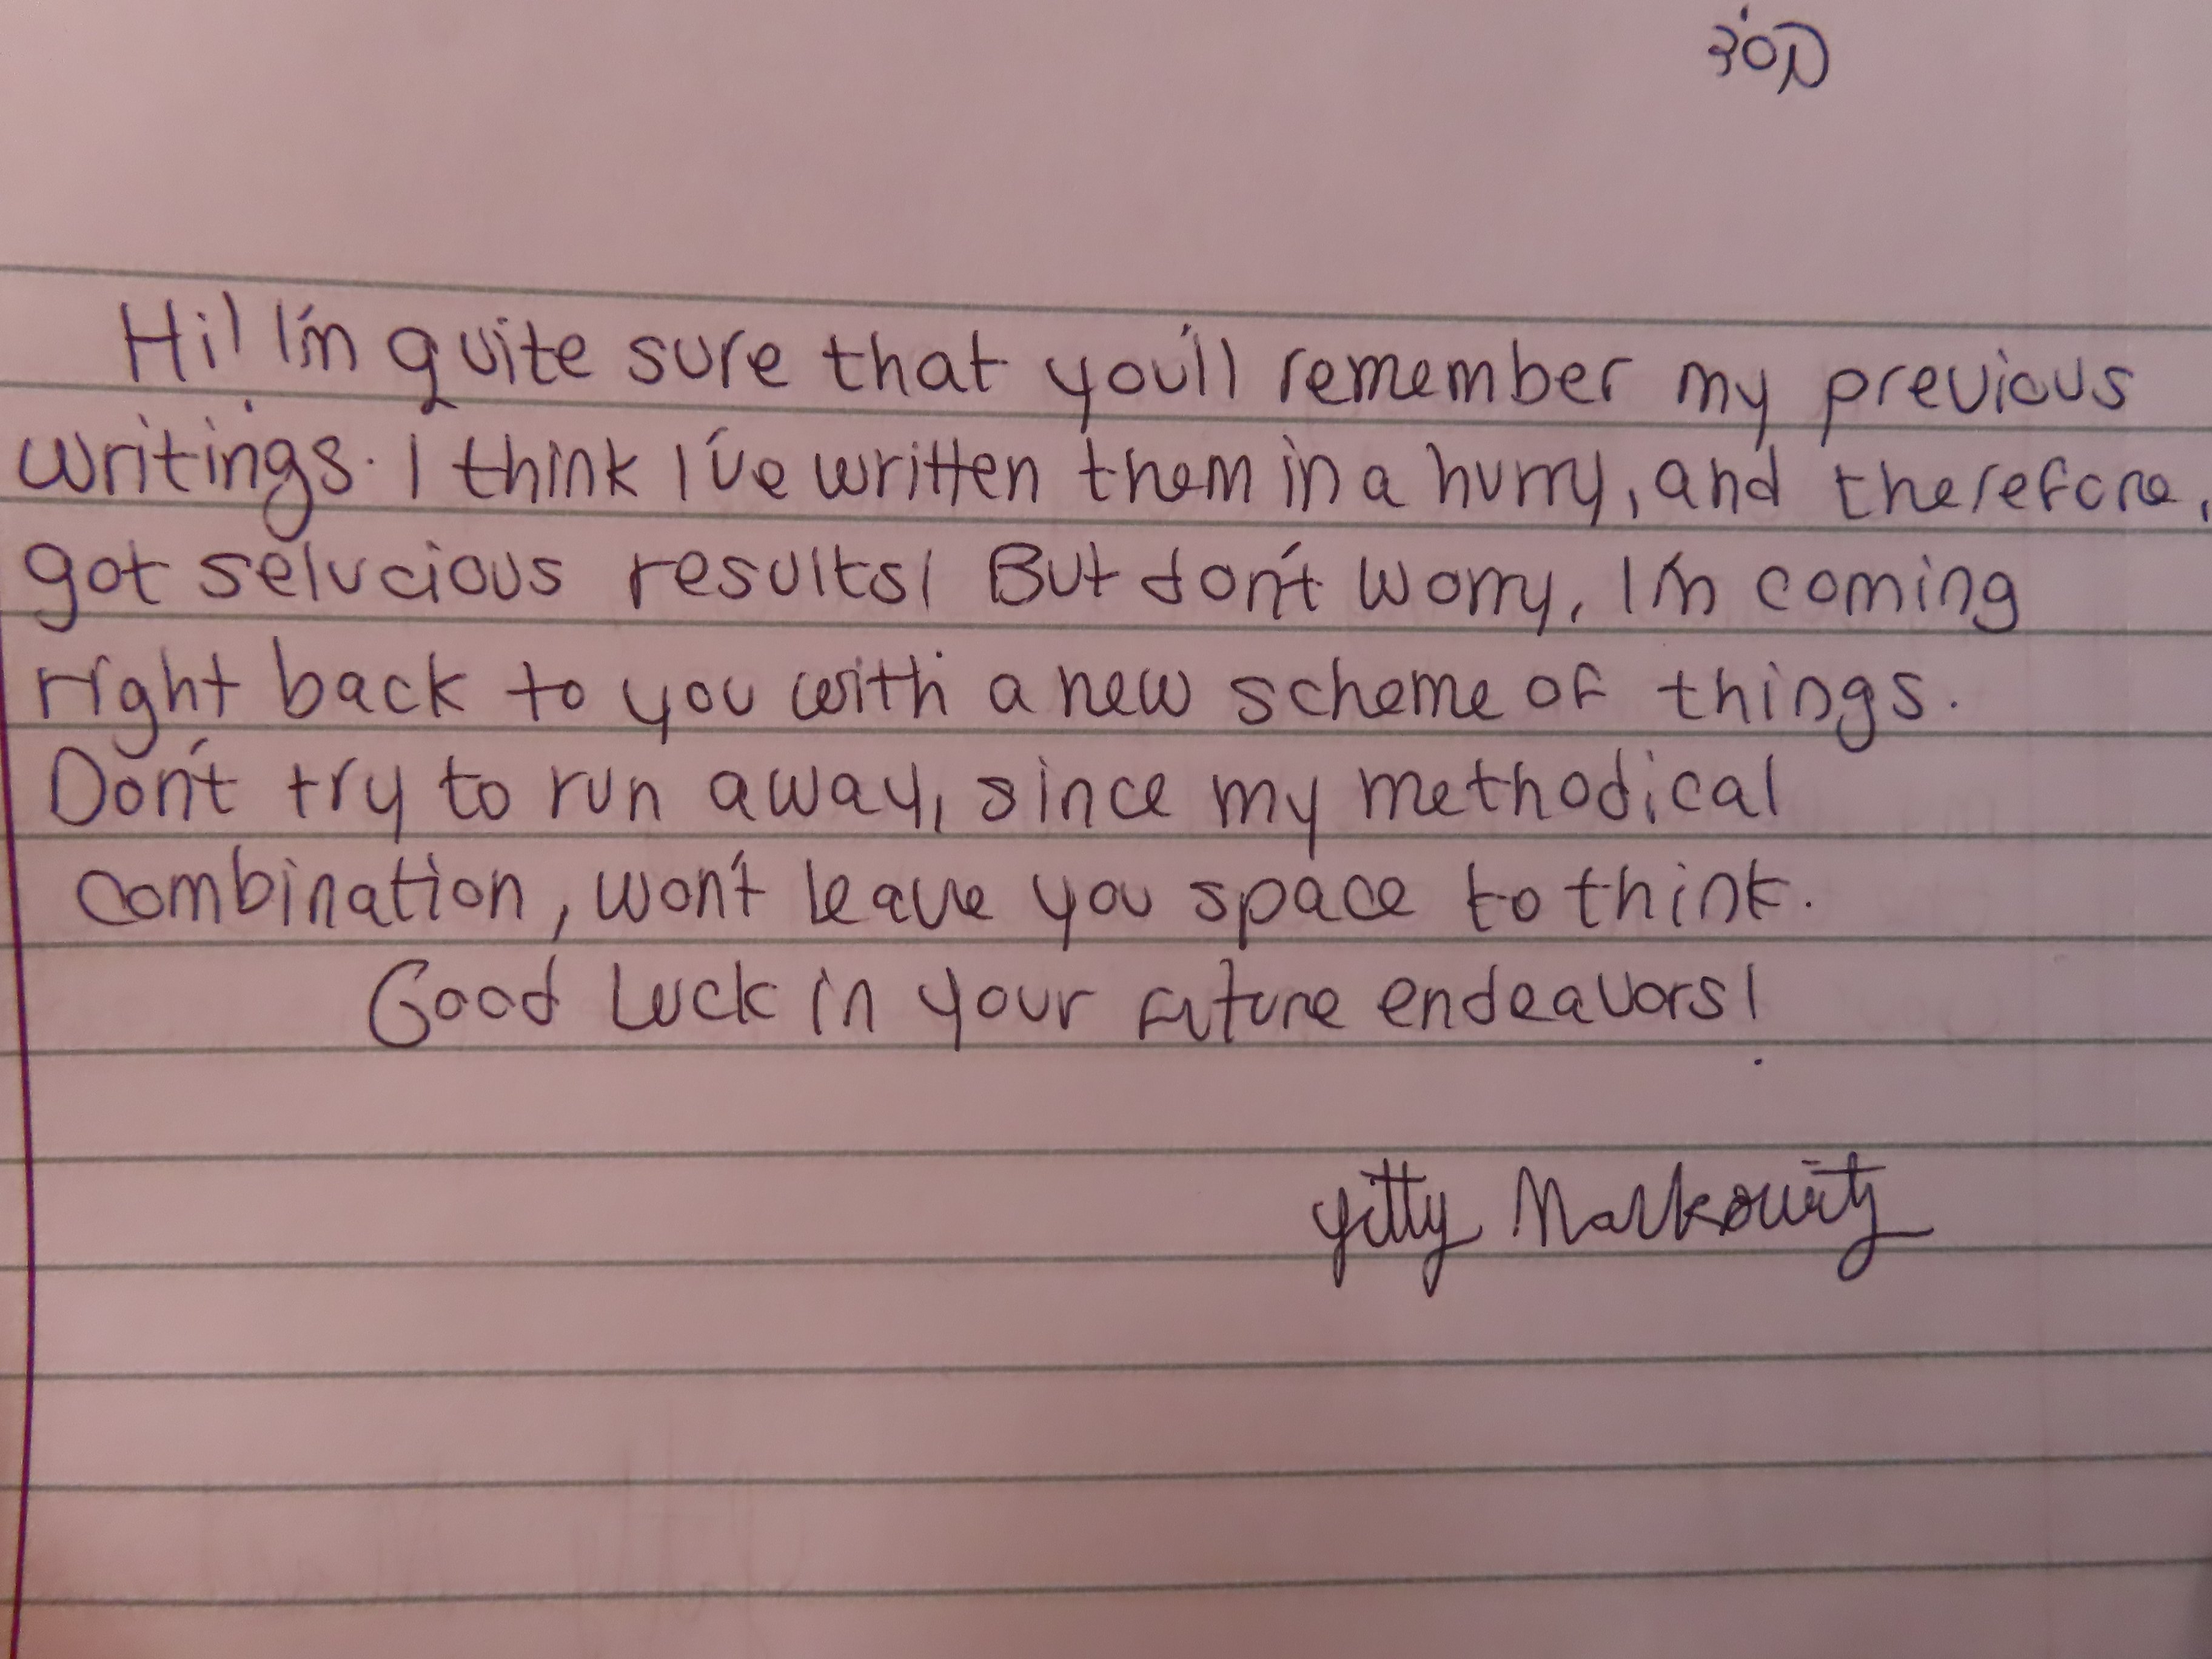 בס"ד
Hi! I'm quite sure that you'll remember my previous
writings. I think I've written them in a hurry, and therefore,
got selucious results! But don't worry, I'm coming
right back to you with a new scheme of things.
Don't try to run away, since my methodical
combination, won't leave you space to think.
Good Luck in your future endeavors!
Yitty Markowitz